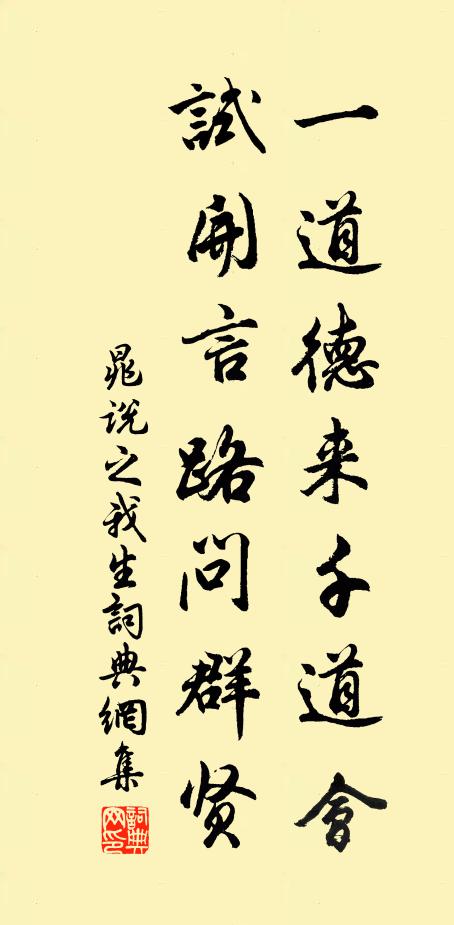 一道德来千道會
試開言路問群贤
晁说之我生詞典網集
詞典
网印